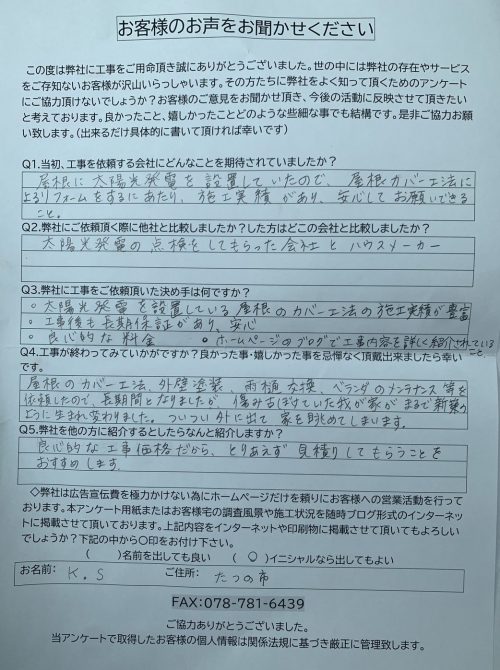 お客様のお声をお聞かせください
この度は弊社に工事をご用命頂き誠にありがとうございました。世の中には弊社の存在やサービス
をご存知ないお客様が沢山いらっしゃいます。その方たちに弊社をよく知って頂くためのアンケート
にご協力頂けないでしょうか？お客様のご意見をお聞かせ頂き、今後の活動に反映させて頂きたい
と考えております。良かったこと、嬉しかったことどのような些細な事でも結構です。是非ご協力お願
い致します。（出来るだけ具体的に書いて頂ければ幸いです）
Q1.当初、工事を依頼する会社にどんなことを期待されていましたか？
屋根に太陽光発電を設置していたので、屋根カバー工法に
よるリフォームをするにあたり、施工実績があり、安心してお願いできる
こと。
Q2.弊社にご依頼頂く際に他社と比較しましたか？した方はどこの会社と比較しましたか？
太陽光発電の点検をしてもらった会社とハウスメーカー
Q3.弊社に工事をご依頼頂いた決め手は何ですか？
・太陽光発電を設置している屋根のカバー工法の施工実績が豊富
・工事後も長期保証があり、安心
・良心的な料金 ・ホームページのブログで工事内容を詳しく紹介されている
こと
Q4.工事が終わってみていかがですか？良かった事・嬉しかった事を忌憚なく頂戴出来ましたら幸い
です。
屋根のカバー工法、外壁塗装、雨樋交換、ベランダのメンテナンス等を
依頼したので、長期間となりましたが、傷みるぼけていた我が家がまるで新築の
ように生まれ変わりました。ついつい外に出て家を眺めてしまいます。
Q5.弊社を他の方に紹介するとしたらなんと紹介しますか？
良心的な工事価格だから、とりあえず見積りしてもらうことを
おすすめします。
◇弊社は広告宣伝費を極力かけない為にホームページだけを頼りにお客様への営業活動を行って
おります。本アンケート用紙またはお客様宅の調査風景や施工状況を随時ブログ形式のインターネッ
トに掲載させて頂いております。上記内容をインターネットや印刷物に掲載させて頂いてもよろしい
でしょうか？下記の中から〇印をお付け下さい。
（ ）名前を出しても良い （ 〇 ）イニシャルなら出してもよい
お名前： K.S ご住所： たつの市
FAX：078-781-6439
ご協力ありがとうございました。
当アンケートで取得したお客様の個人情報は関係法規に基づき厳正に管理致します。